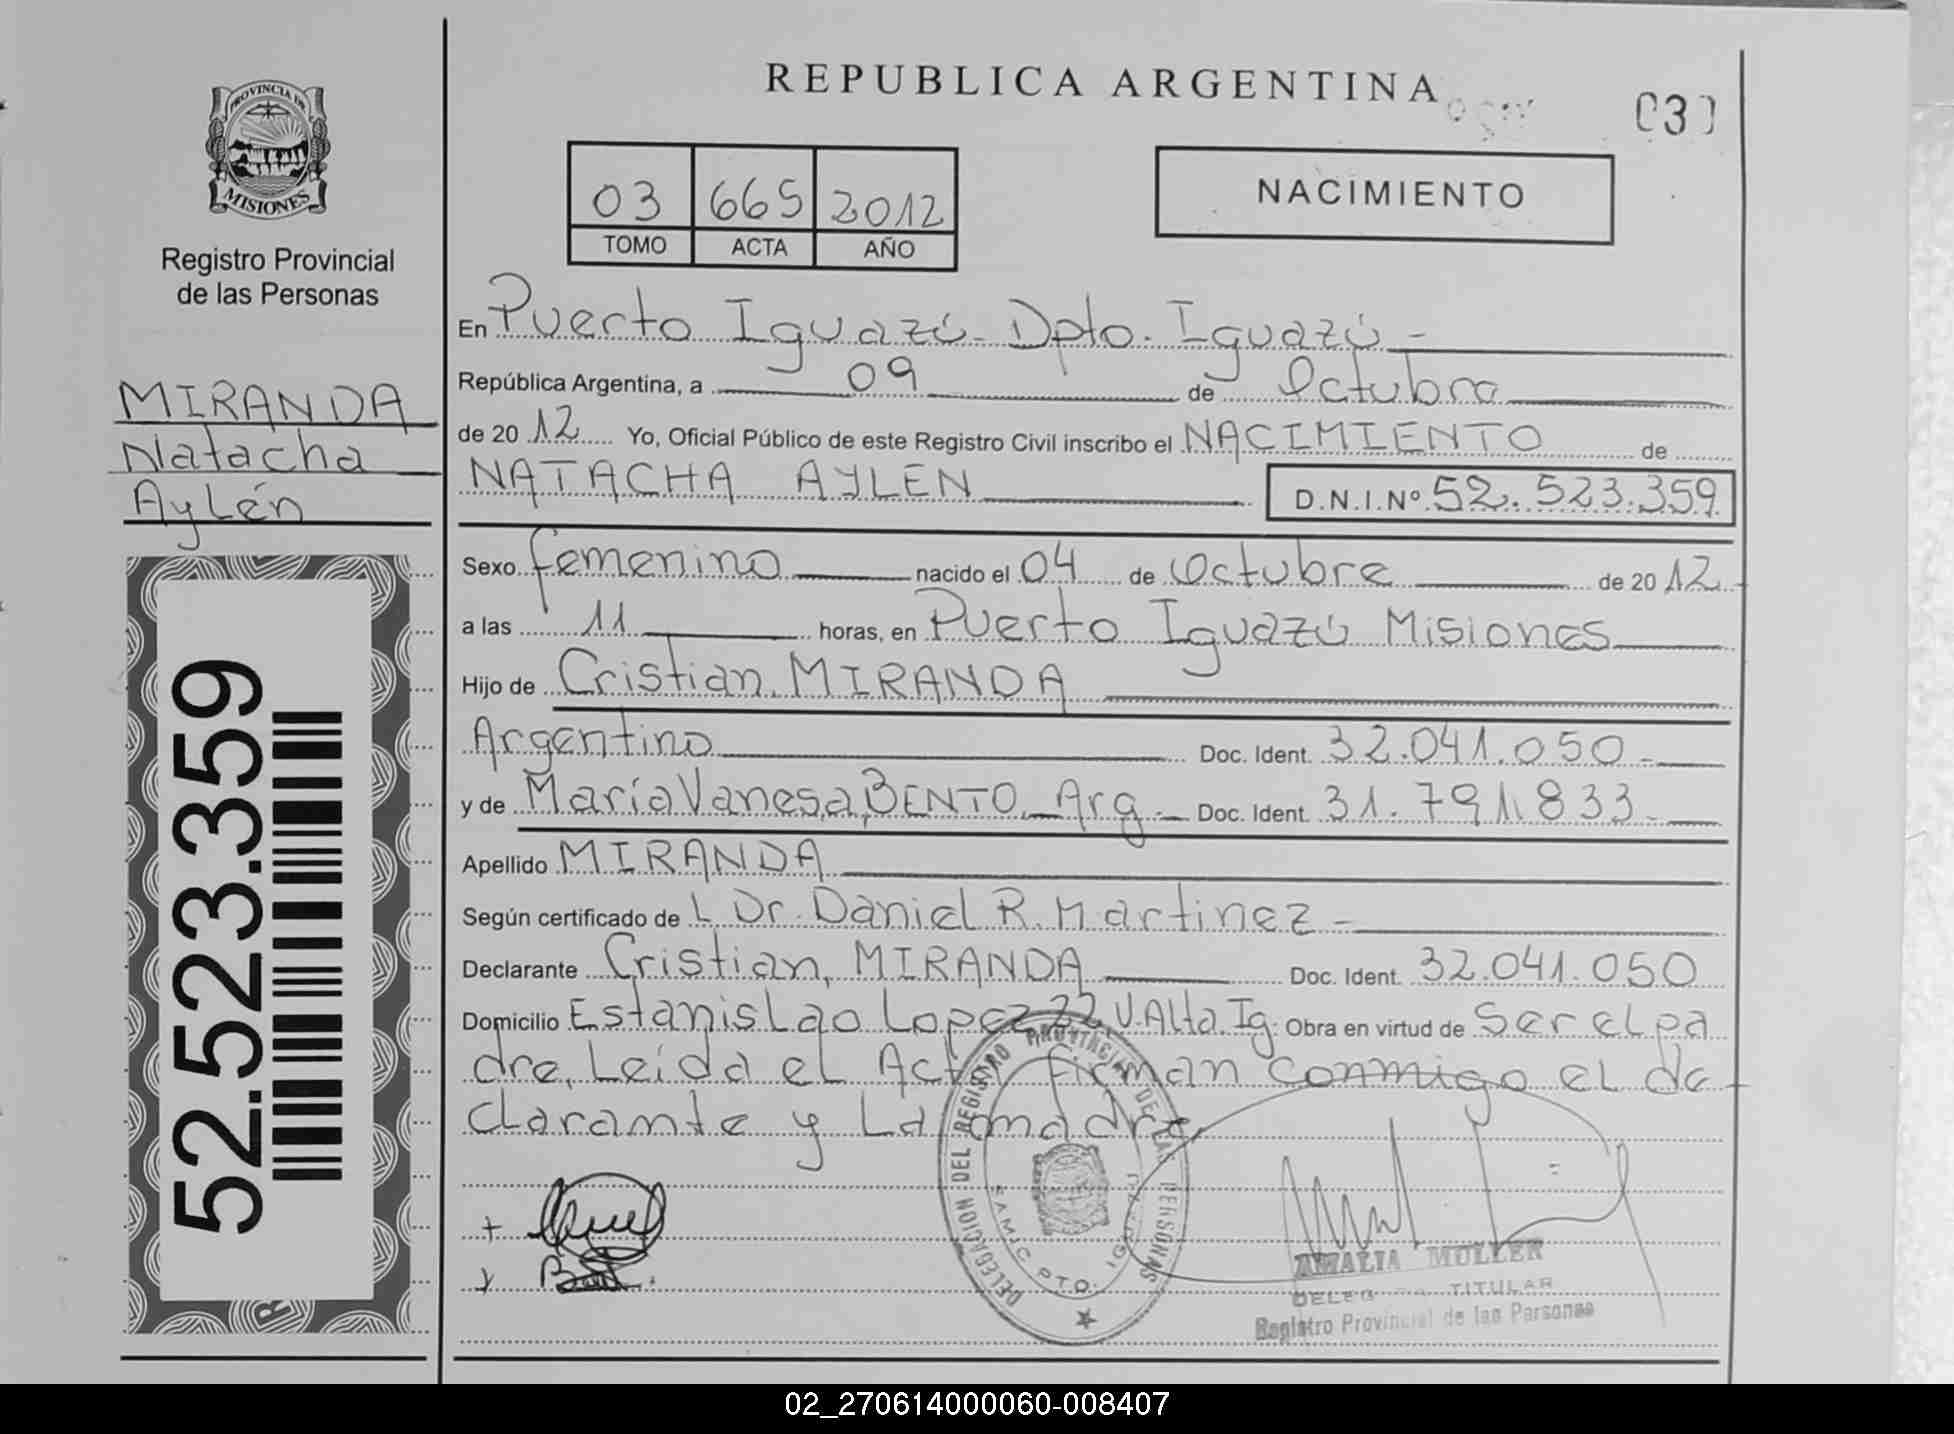 PROVINCIA DE
MISIONES
Registro Provincial
de las Personas
MIRANDA
Natacha
Aylén
52.523.359
REPUBLICA ARGENTINA
03
665
2012
TOMO
ACTA
AÑO
NACIMIENTO
En Puerto Iguazú - Dpto. Iguazú -
República Argentina, a 09 de Octubre
de 2012 Yo, Oficial Público de este Registro Civil inscribo el NACIMIENTO de
NATACHA AYLEN D.N.I.Nº 52.523.359
Sexo femenino nacido el 04 de Octubre de 2012
a las 11 horas, en Puerto Iguazú Misiones
Hijo de Cristian MIRANDA
Argentino Doc. Ident. 32.041.050 -
y de María Vanesa BENTO - Arg. - Doc. Ident. 31.791.833 -
Apellido MIRANDA
Según certificado de L Dr. Daniel R. Martinez -
Declarante Cristian, MIRANDA Doc. Ident. 32.041.050
Domicilio Estanislao Lopez 22 V. Alta Ig. Obra en virtud de Ser el pa
dre, Leída el Acta firman conmigo el de
clarante y La madre,
DELEGACION DEL REGISTRO PROVINCIAL DE LAS PERSONAS
PTO. IGUAZU
AMALIA MULLER
TITULAR
Registro Provincial de las Personas
02_270614000060-008407